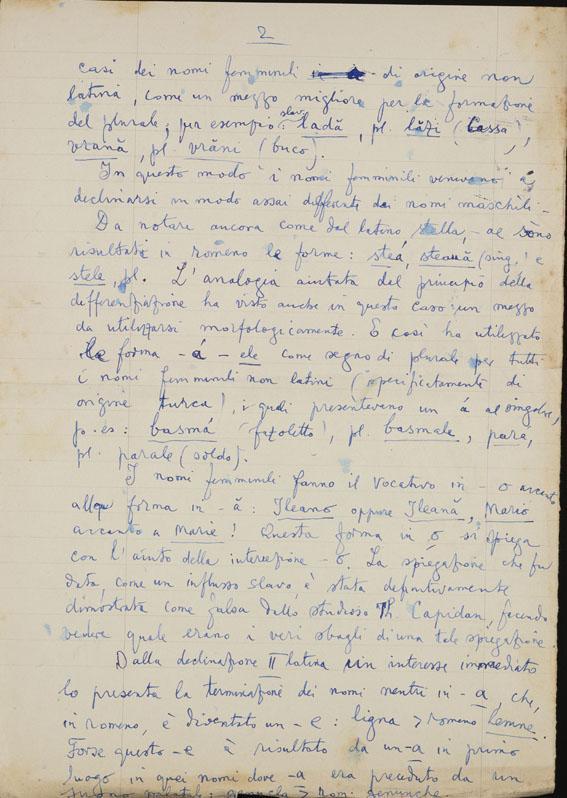 2
casi dei nomi femminili di origine non
latina, come un mezzo migliore per la formazione
del plurale, per esempio: slav. ladă, pl. lăzi (cassa),
vrană, pl. vrăni (buco).
In questo modo i nomi femminili venivano a
declinarsi in modo assai differente dai nomi maschili.
Da notare ancora come dal latino stella, -ae sono
risultati in romeno le forme: stea, steauă (sing.) e
stele, pl. L'analogia aiutata dal principio della
differenziazione ha visto anche in questo caso un mezzo
da utilizzarsi morfologicamente. E così ha utilizzato
la forma -á - ele come segno di plurale per tutti
i nomi femminili non latini (specificatamente di
origine turca), i quali presentavano un á al singolare,
p. es: basmá (fazoletto), pl. basmale, para,
pl. parale (soldo).
I nomi femminili fanno il vocativo in -o accanto
alla forma in -ă: Ileano oppure Ileană, Mario
accanto a Marie! Questa forma in o si spiega
con l'aiuto della interiezione -o. La spiegazione che fu
data, come un influsso slavo, è stata definitivamente
dimostrata come falsa dallo studioso Th. Capidan, facendo
vedere quale erano i veri sbagli di una tale spiegazione.
Dalla declinazione II latina un interesse immediato
lo presenta la terminazione dei nomi neutri in -a che,
in romeno, è diventato un -e: ligna > romeno lemne.
Forse questo -e è risultato da un -a in primo
luogo in quei nomi dove -a era preceduto da un
suono palatale: genucla > rom. genunche.